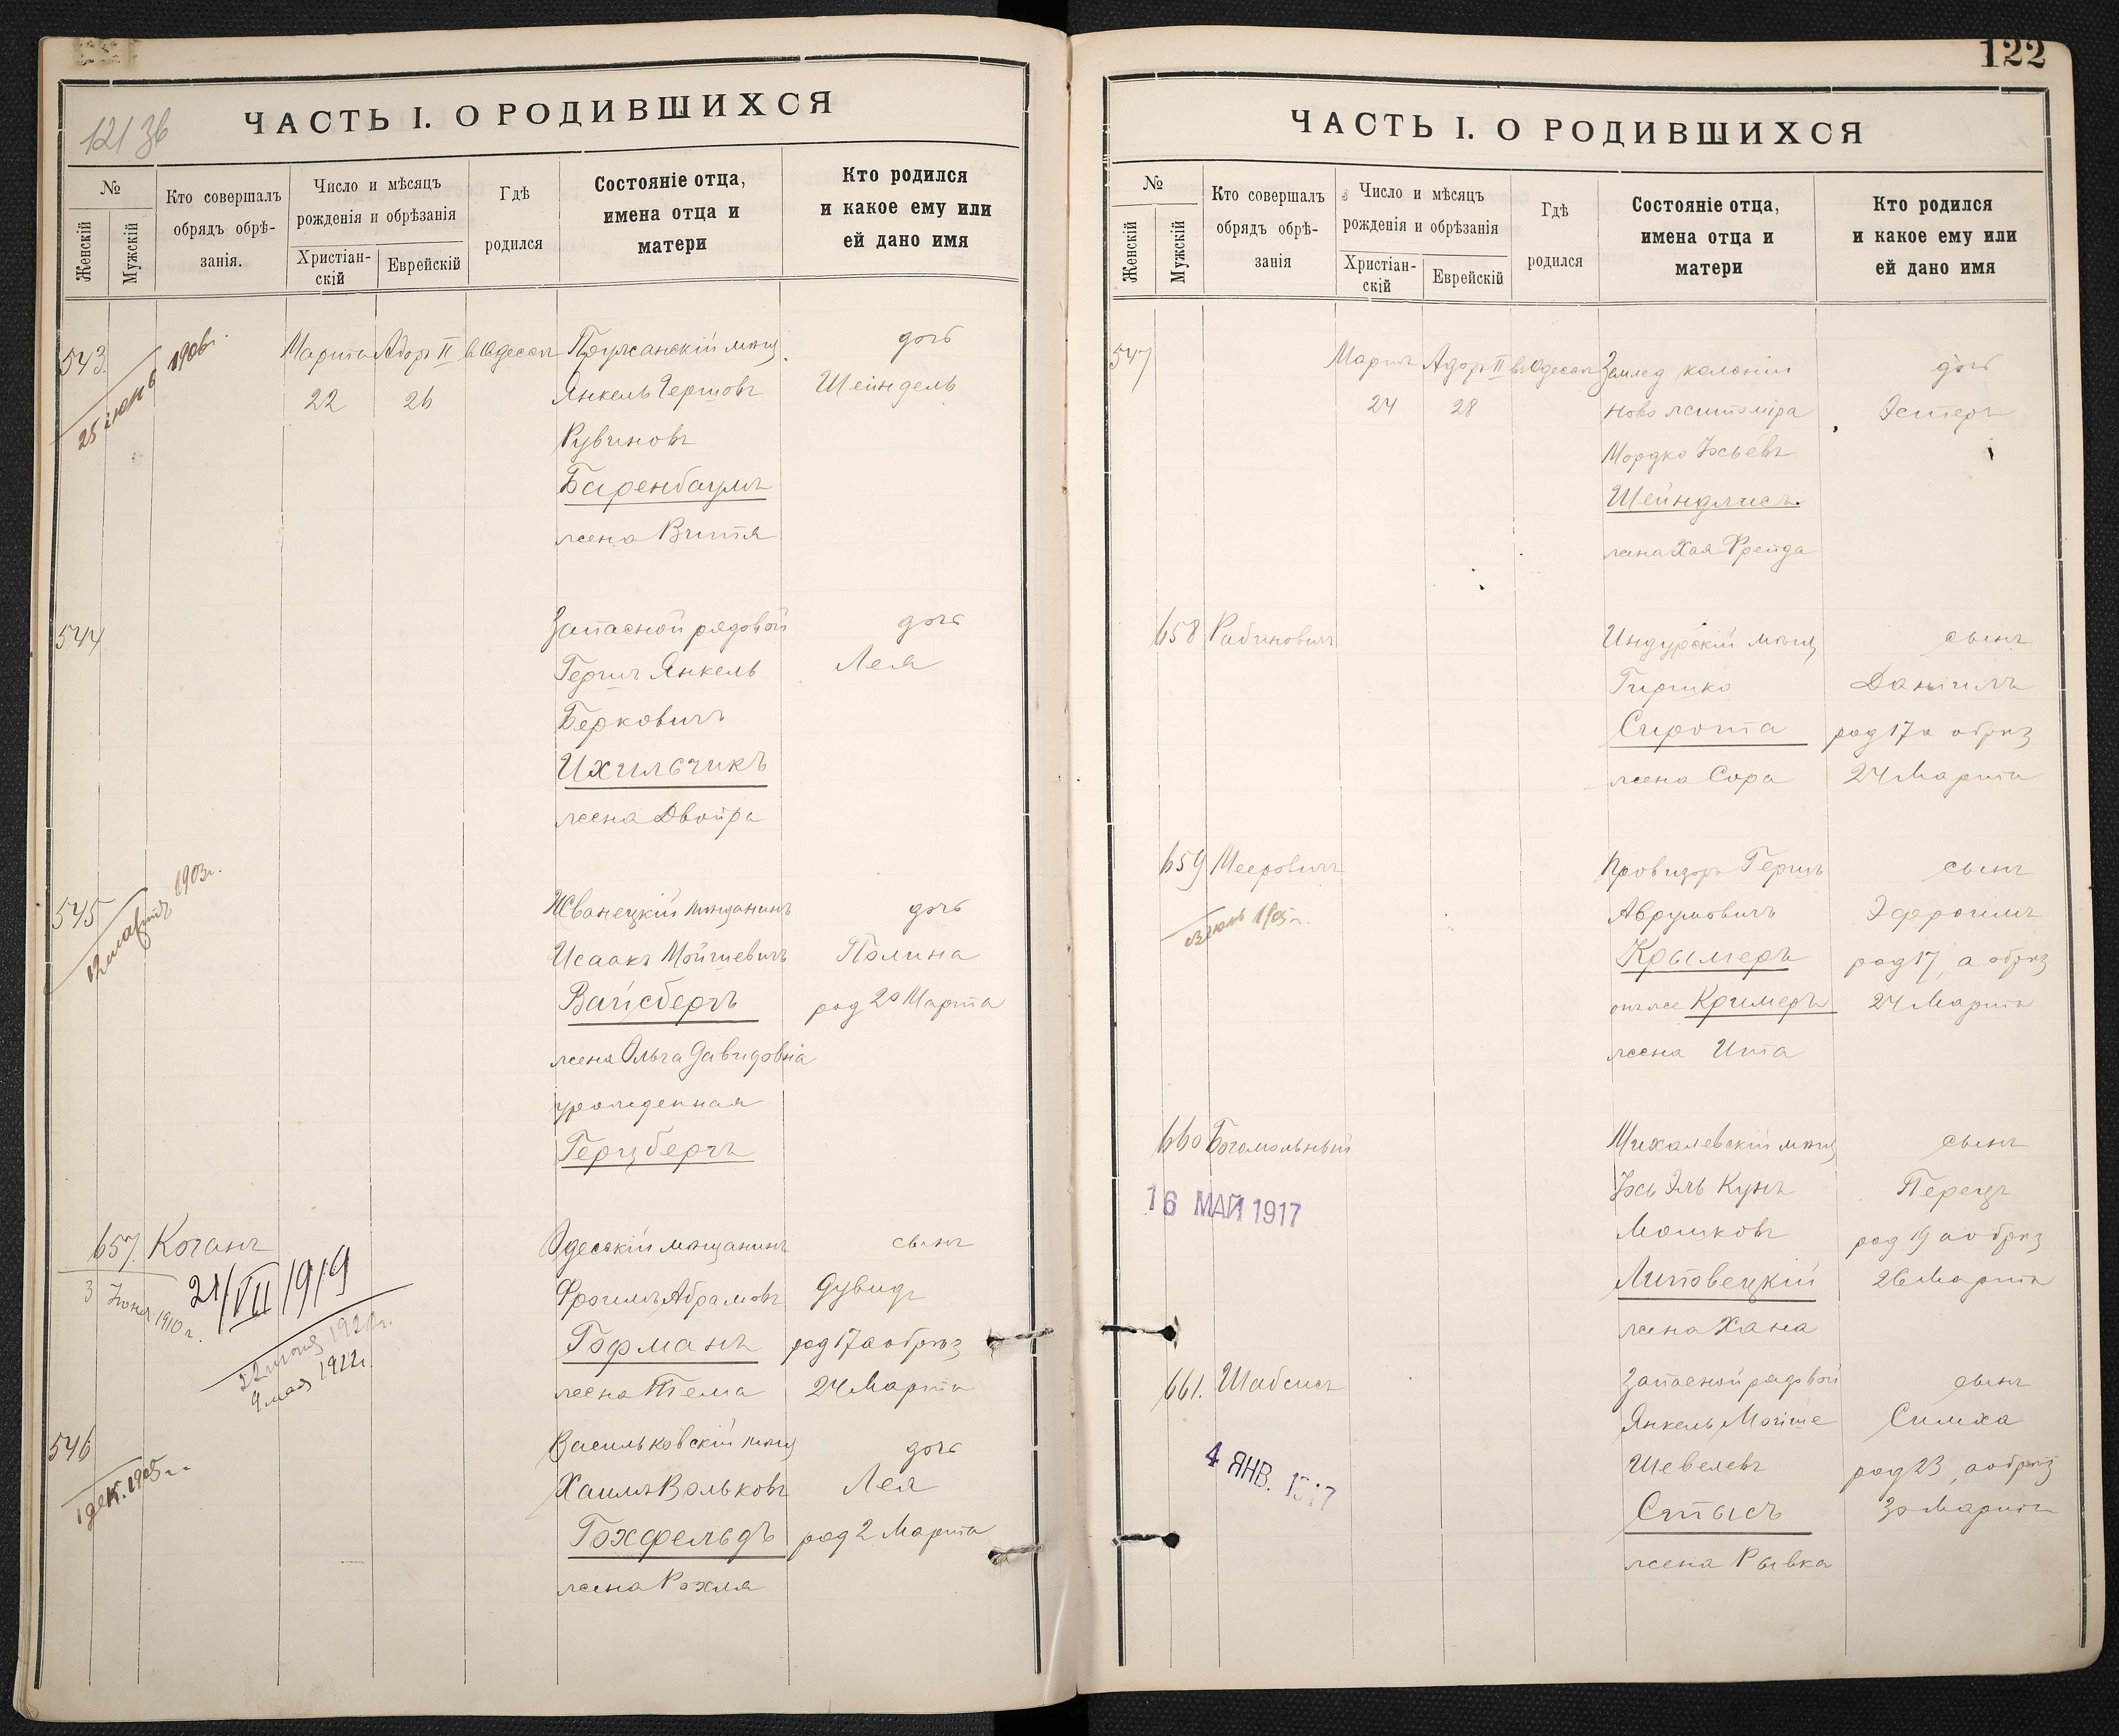 121 зв
ЧАСТЬ I. О РОДИВШИХСЯ
№
Женскій
Мужскій
Кто совершалъ
обрядъ обрѣ-
занія.
Число и мѣсяцъ
рожденія и обрѣзанія
Христіан-
скій
Еврейскій
Гдѣ
родился
Состояніе отца,
имена отца и
матери
Кто родился
и какое ему или
ей дано имя
543.
25 іюнь 1906 г.
Марта Адоръ II въ Одессѣ
22 26
мѣщ.
Янкель Гершовъ
Рувиновъ
Баренбаумъ
жена Витя
дочь
Шейндель
544
Запасной рядовой
Гершъ Янкель
Берковичъ
Ихильчикъ
жена Двойра
дочь
Лея
545
12 мартъ 1903 г.
Жванецкій мѣщанинъ
Исаакъ Мойшевичъ
Вайсбергъ
жена Ольга Давидовна
урожденная
Герцбергъ
дочь
Полина
род 20 Марта
657. Коганъ
3 Іюня 1910 г.
21/VII 1919
9 мая 1922 г.
Одесскій мѣщанинъ
Фроимъ Абрамовъ
Гофманъ
жена Тема
сынъ
Дувидъ
род 17 а обрѣз
24 Марта
546
1 дек. 1905 г.
Васильковскій мѣщ
Хаимъ Вольковъ
Гохфельдъ
жена Рохля
дочь
Лея
род 2 Марта
122
ЧАСТЬ I. О РОДИВШИХСЯ
№
Женскій
Мужскій
Кто совершалъ
обрядъ обрѣ-
занія
Число и мѣсяцъ
рожденія и обрѣзанія
Христіан-
скій
Еврейскій
Гдѣ
родился
Состояніе отца,
имена отца и
матери
Кто родился
и какое ему или
ей дано имя
547
Марта Адоръ II въ Одессѣ
24 28
Землед колоніи
Ново житоміра
Мордко Іосьевъ
Шейндлисъ.
жена Хая Фрейда
дочь
Эстеръ
658 Рабиновичъ
Индурскій мѣщ
Гиршко
Сирота
жена Сора
сынъ
Даніилъ
род 17 а обрѣз
24 Марта
659 Мееровичъ
1905 г.
Провизоръ Гершъ
Аврумовичъ
Крымеръ
онъ же Кримеръ
жена Ита
сынъ
Эфроимъ
род 17, а обрѣз
24 Марта
660 Богомольный
16 МАЙ 1917
Михалевскій мѣщ
Іось Эль Кунъ
Мошковъ
Литовецкій
жена Хана
сынъ
Перецъ
род 19 а обрѣз
26 Марта
661. Шабсисъ
4 ЯНВ. 1917
Запасной рядовой
Янкель Мойше
Шевелевъ
Стысь
жена Рывка
сынъ
Симха
род 23, а обрѣз
30 Марта